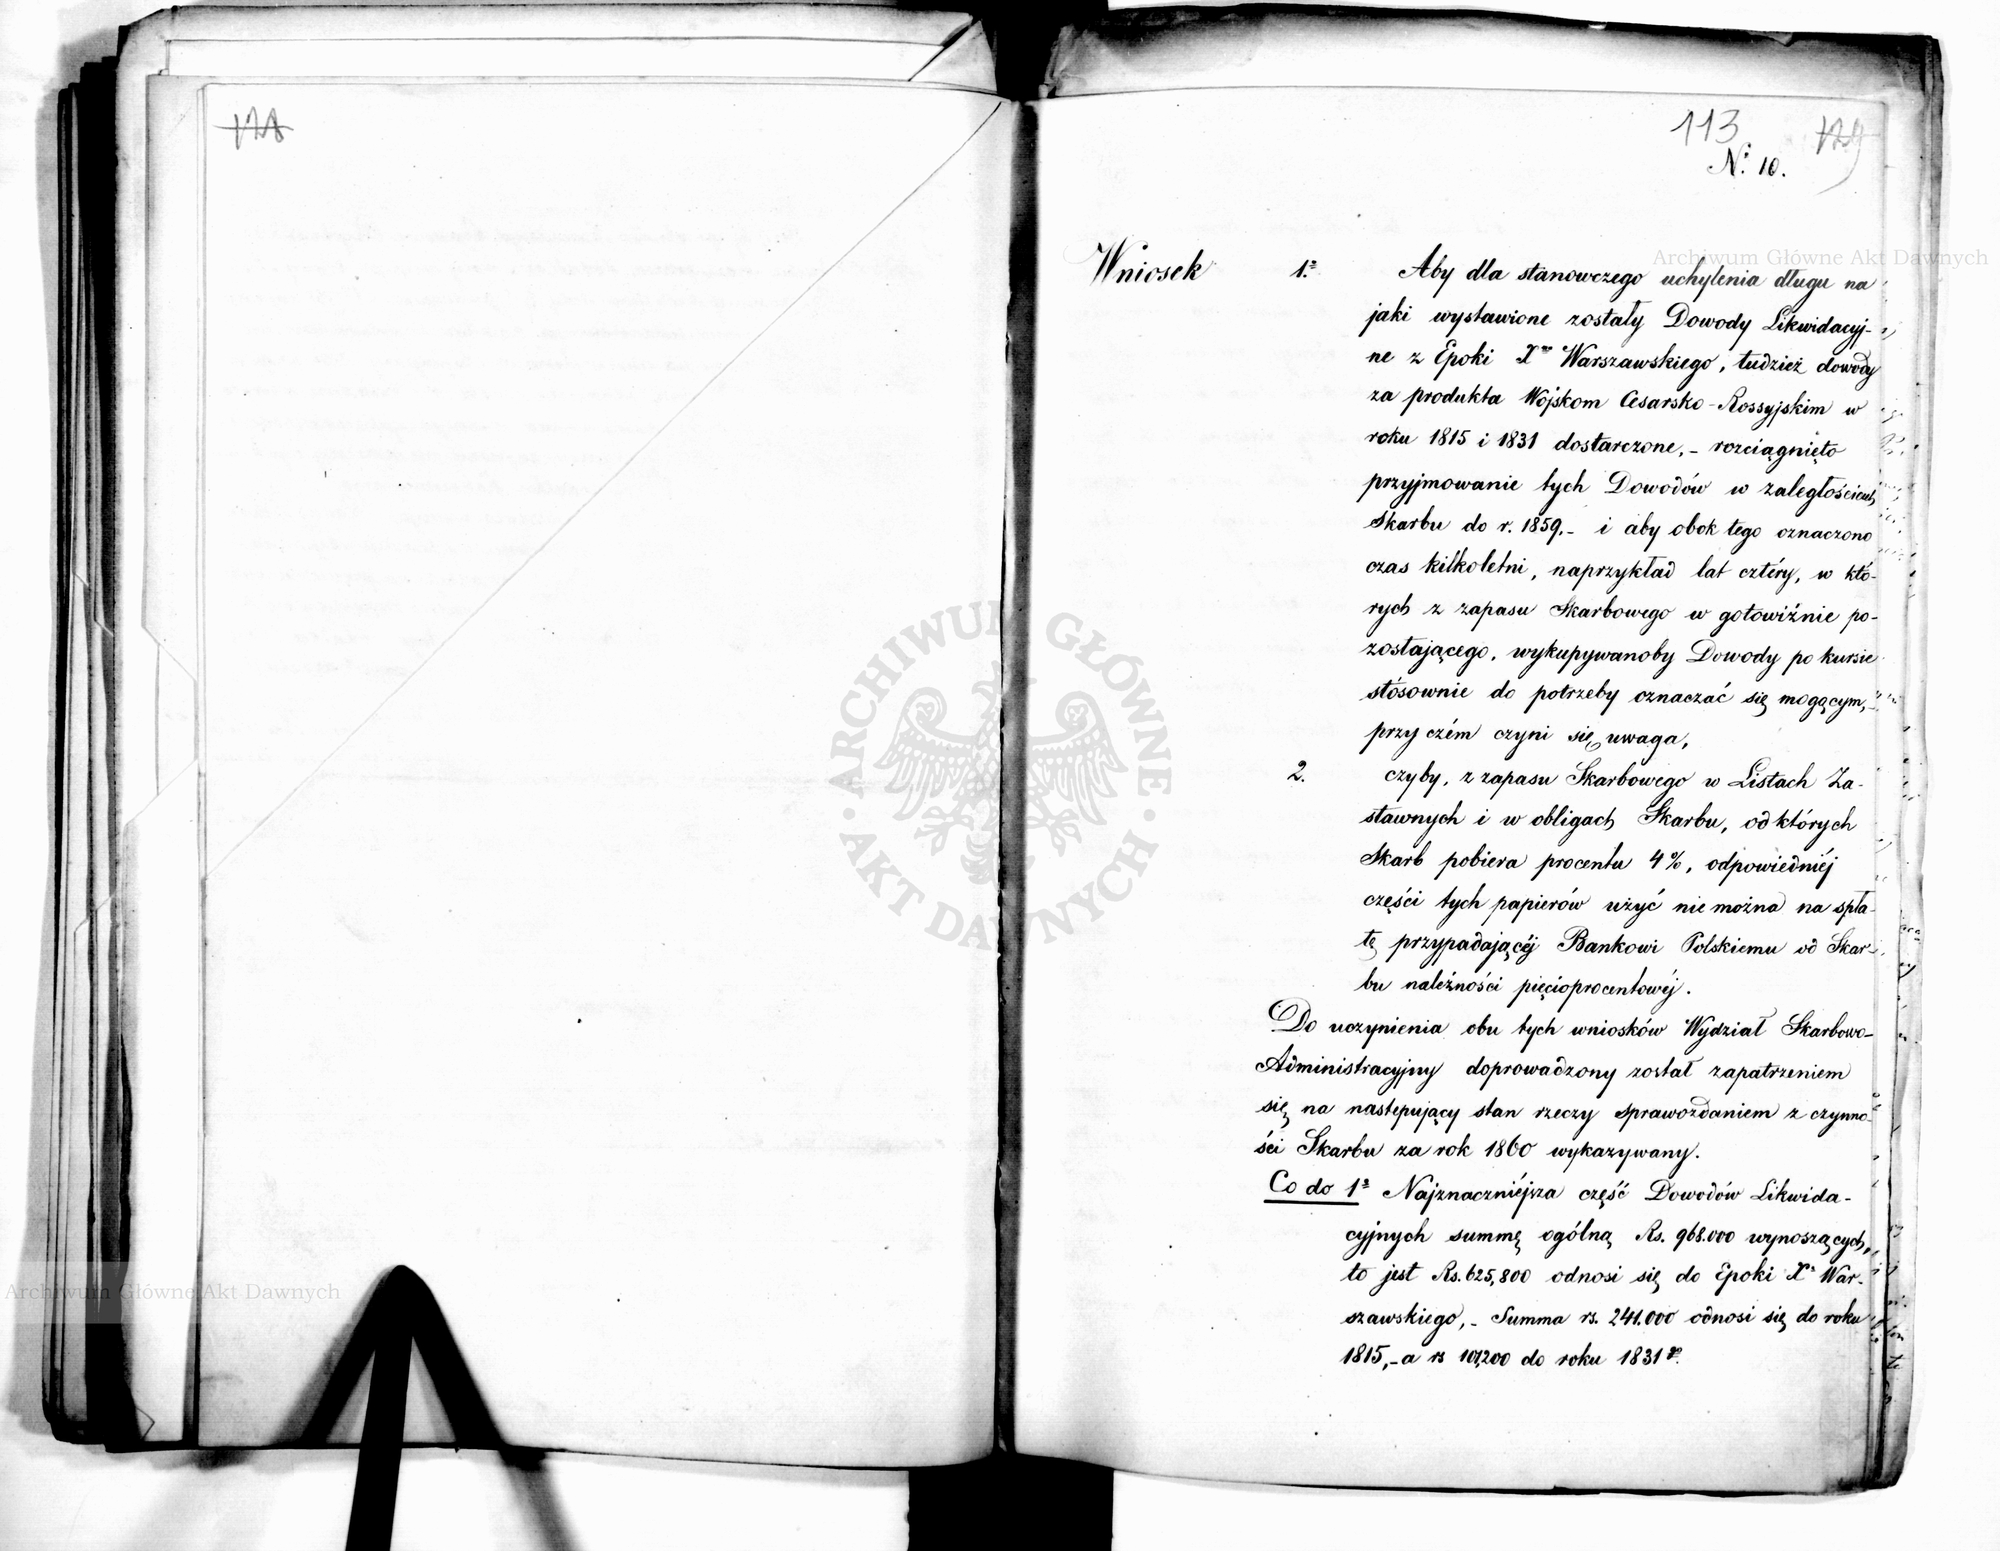 128
113 129
Nº 10.
Archiwum Główne Akt Dawnych
Wniosek 1º Aby dla stanowczego uchylenia długu na
jaki wystawione zostały Dowody Likwidacyj-
ne z Epoki Xwa Warszawskiego, tudzież dowody
za produkta Wojskom Cesarsko-Rossyjskim w
roku 1815 i 1831 dostarczone,- rozciągnięto
przyjmowanie tych Dowodów w zaległościach
Skarbu do r. 1859.- i aby obok tego oznaczono
czas kilkoletni, naprzykład lat cztéry, w któ-
rych z zapasu Skarbowego w gotowiźnie po-
zostającego, wykupywanoby Dowody po kursie
stósownie do potrzeby oznaczać się mogącym,
przy czém czyni się uwaga,
2. czyby, z zapasu Skarbowego w Listach Za-
stawnych i w obligach Skarbu, od których
Skarb pobiera procentu 4%, odpowiedniéj
części tych papierów użyć nie można na spła-
tę przypadającéj Bankowi Polskiemu od Skar-
bu należności pięcioprocentowéj.
Do uczynienia obu tych wniosków Wydział Skarbowo-
Administracyjny doprowadzony został zapatrzeniem
się na następujący stan rzeczy sprawozdaniem z czynno-
ści Skarbu za rok 1860 wykazywany.
Co do 1º Najznaczniéjsza część Dowodów Likwida-
cyjnych summę ogólną Rs. 968.000 wynoszących,
to jest Rs. 625,800 odnosi się do Epoki Xa War-
szawskiego,- Summa rs. 241.000 odnosi się do roku
1815,- a rs 101,200 do roku 1831go.
ARCHIWUM GŁÓWNE AKT DAWNYCH
Archiwum Główne Akt Dawnych